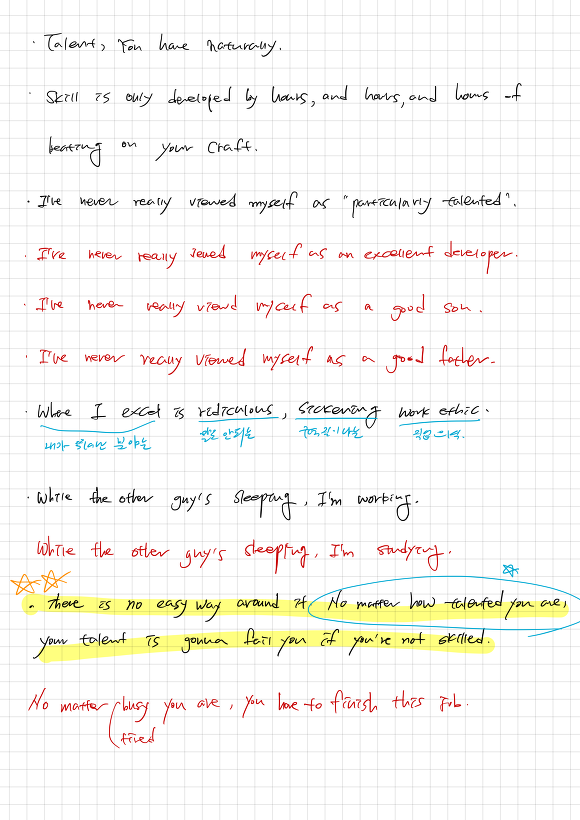 · Talent, You have naturally.
· Skill is only developed by hours, and hours, and hours of
beating on your craft.
· I've never really viewed myself as "particularly talented".
· I've never really viewed myself as an excellent developer.
· I've never really viewd myself as a good son.
· I've never really viewed myself as a good father.
· Where I excel is ridiculous, sickening work ethic.
내가 뛰어난 분야는 말도 안되는 구역질이나는 직업 의식.
· While the other guy's sleeping, I'm working.
While the other guy's sleeping, I'm studying.
· There is no easy way around it No matter how talented you are,
your talent is gonna fail you if you're not skilled.
No matter busy you are, you have to finish this job.
tired